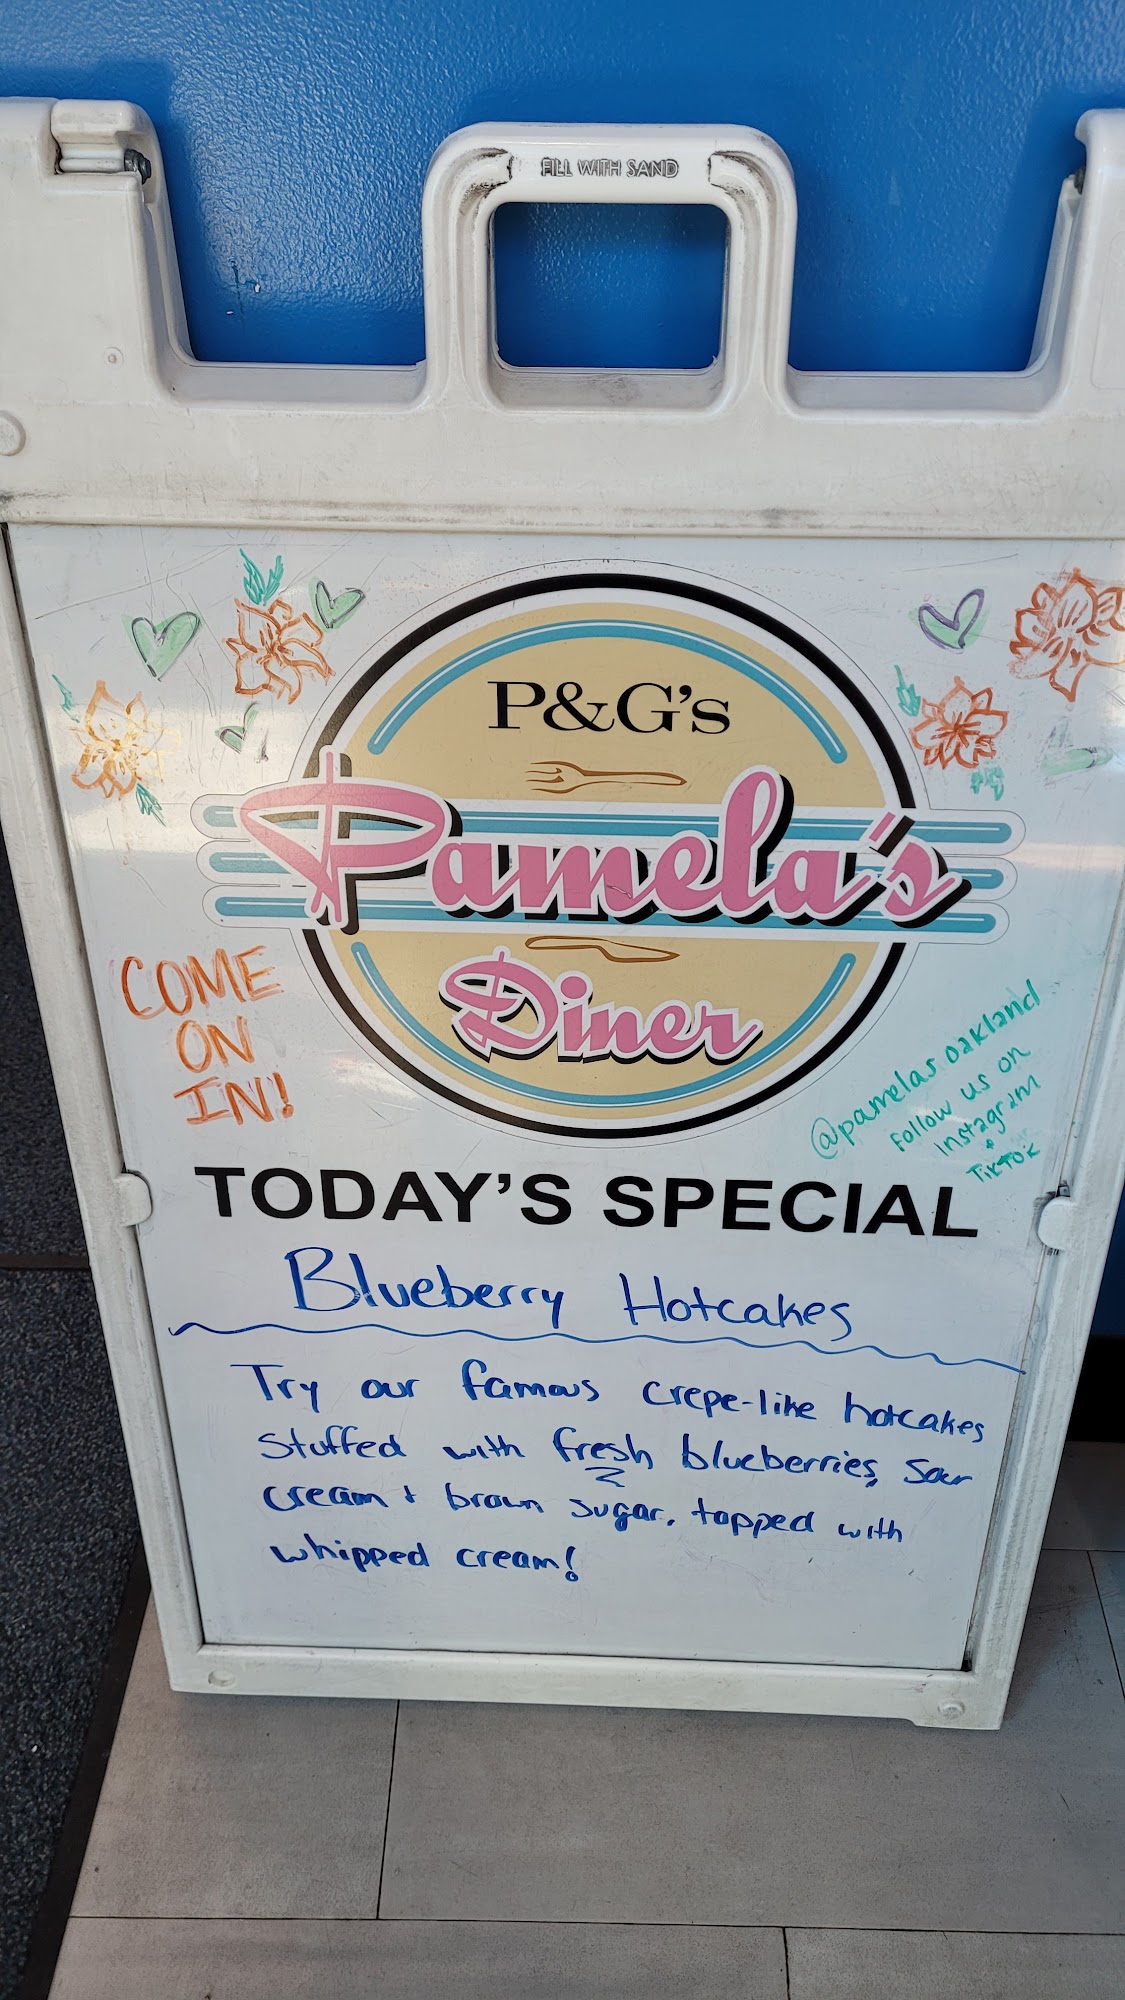 FILL WITH SAND
P&G's
Pamela's
Diner
COME
ON
IN!
@pamelasoakland
Follow us on
Instagram
+
TikTok
TODAY'S SPECIAL
Blueberry Hotcakes
Try our famous crepe-like hotcakes
stuffed with fresh blueberries, sour
cream + brown sugar, topped with
whipped cream!